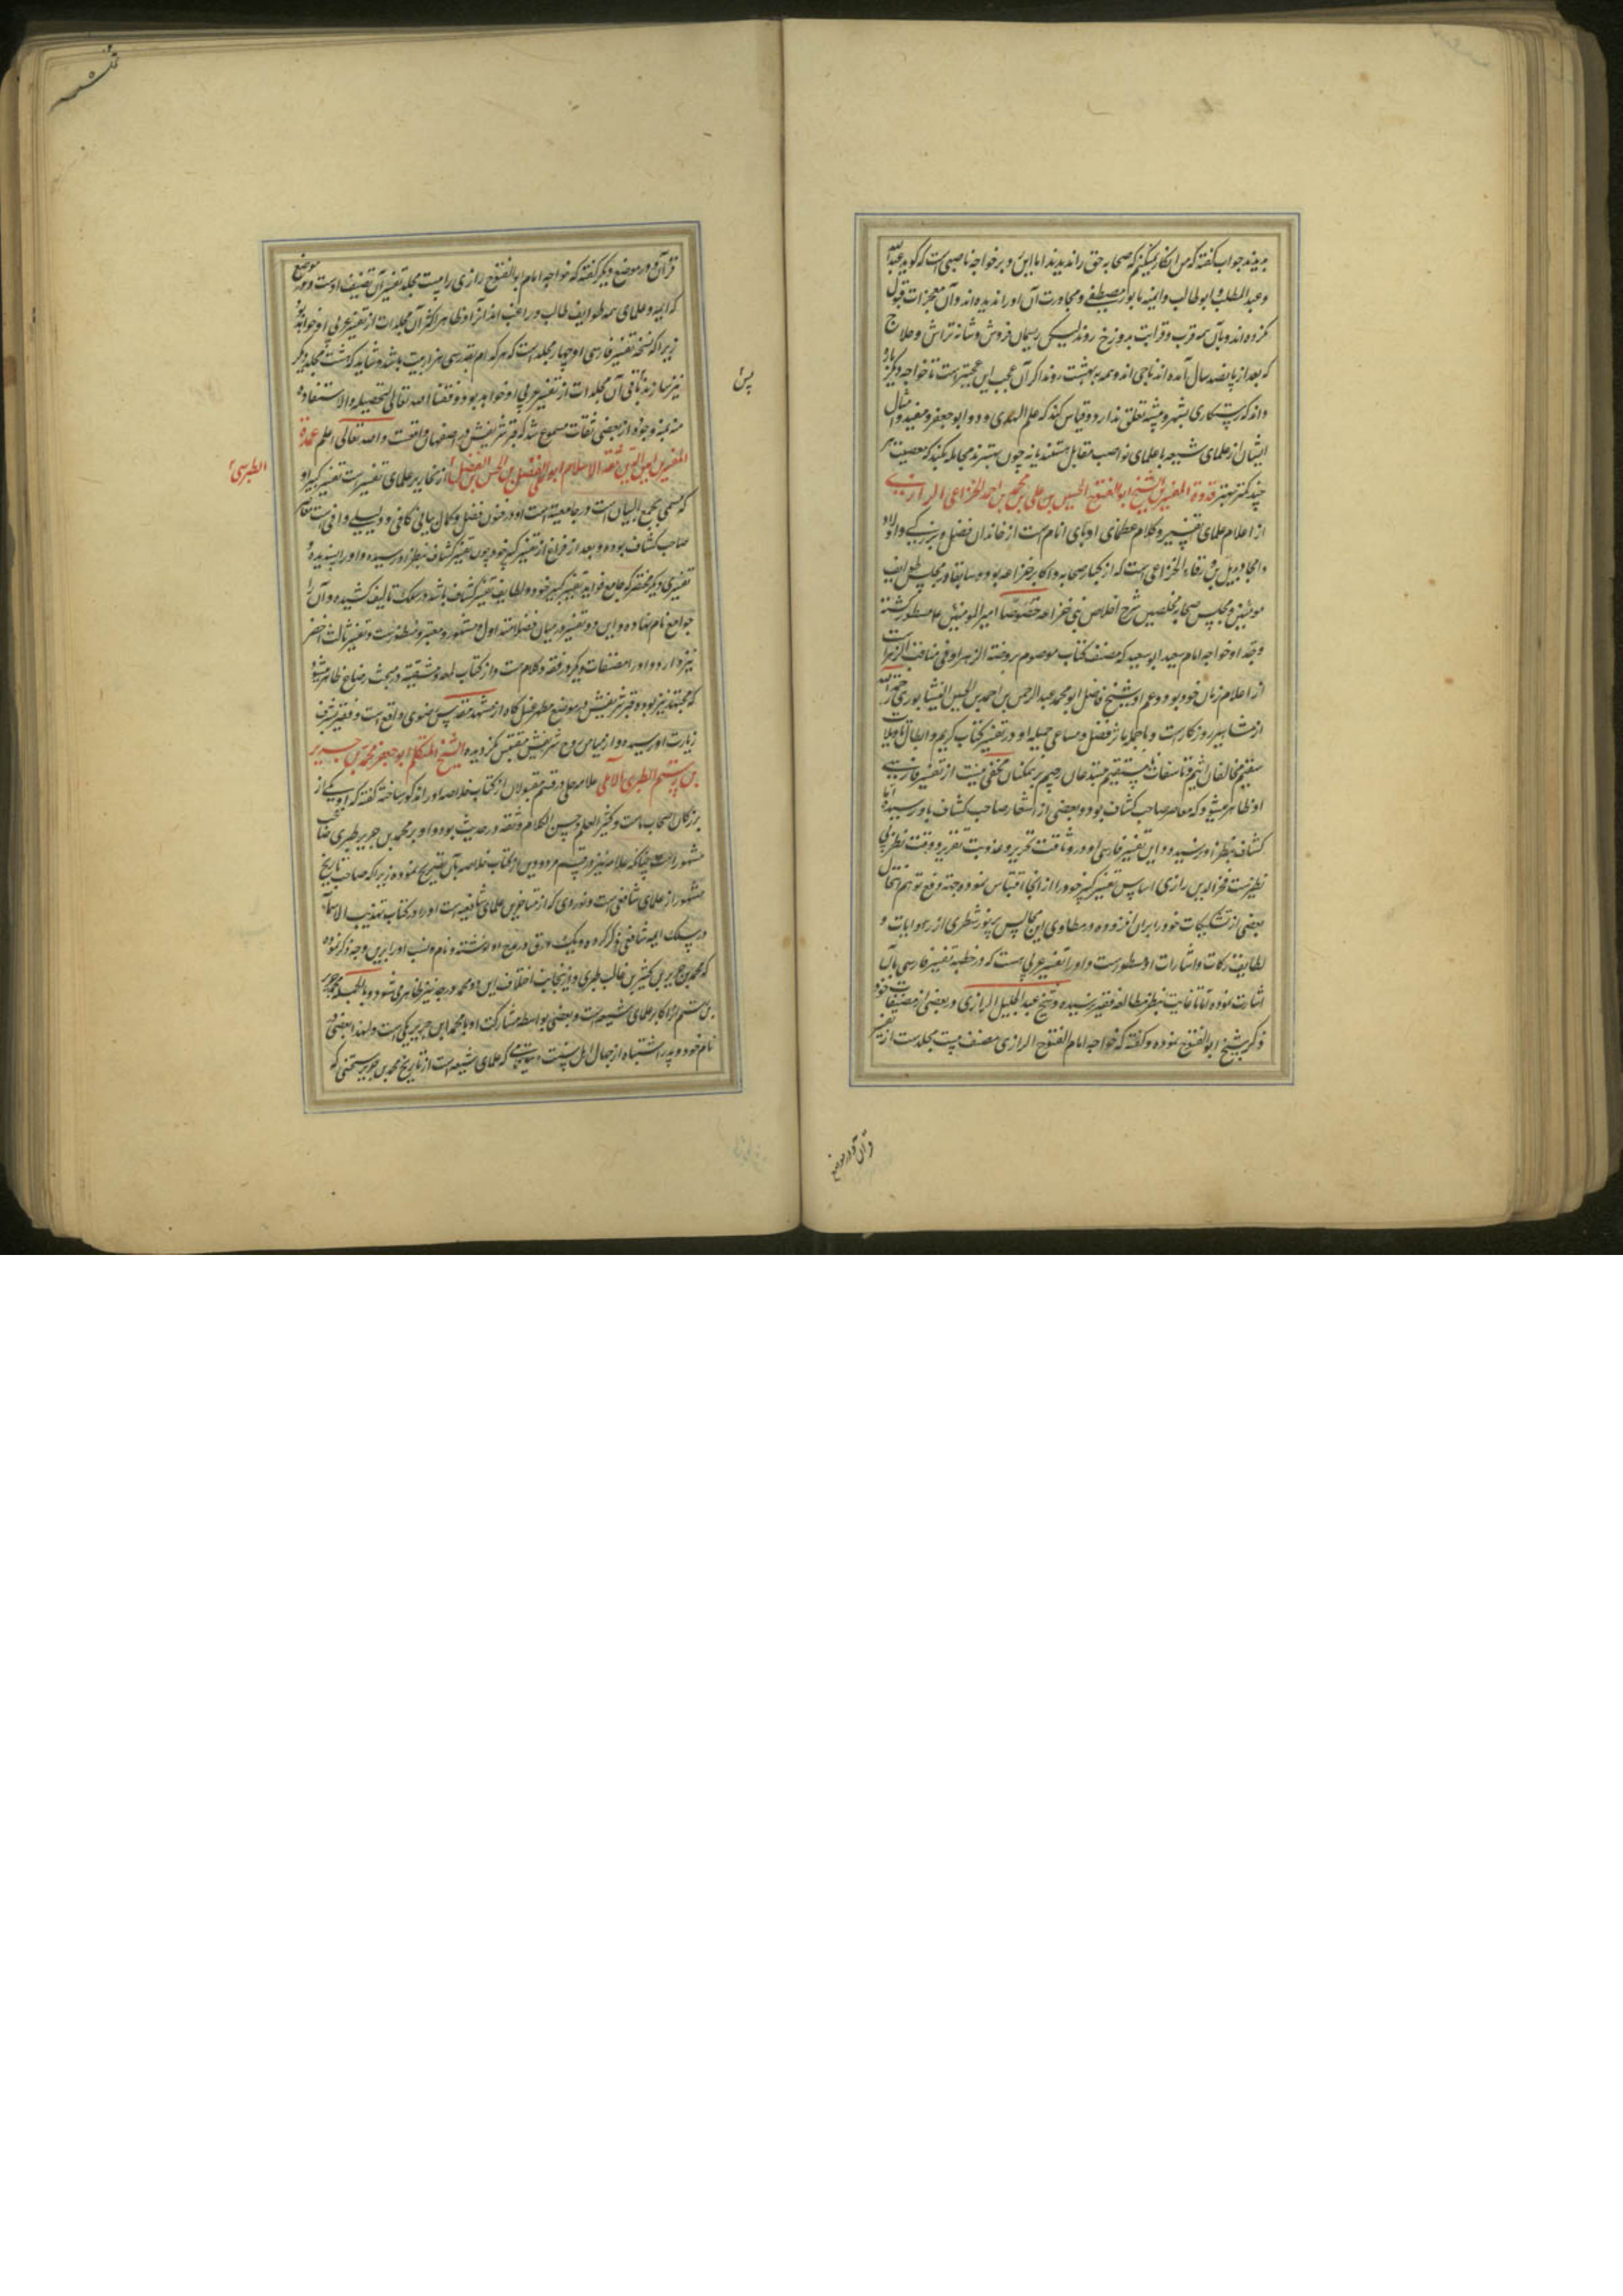 بدیدند جواب گفته که من انکار نمیکنم که صحابه حق را ندیدند اما این و برخواجه ناصبی است که گوید عبدالله
و عبدالمطلب و ابوطالب و امینه با نور مصطفی و مجاورت آن او را ندیده اند و آن معجزات قبول
نکرده اند و با آن همه قرب و قرابت بدوزخ روند لیکن ریسمان فروش و شانه تراش و حلاج
که بعد از پانصد سال آمده اند ناجی اند و همه ببهشت روند اگر آن عجب این عجبتر است تا خواجه دیگر بار
داند که رستگاری بشهر و پیشه تعلق ندارد و قیاس کند که علم الهدی و ابوجعفر و مفید و امثال
ایشان از علمای شیعه با علمای نواصب مقابل هستند یا نه چون بهترند مجامله نکند که مصیبت
چند کمتر بهتر قدوة المفسرین الشیخ ابوالفتوح الحسین بن علی بن محمد بن احمد الخزاعی الرازی
از اعلام علمای تفسیر و کلام و عظمای ادبای انام است از خاندان فضل و بزرگی و اولاد
و امجاد بدیل بن ورقاء الخزاعی است که از کبار صحابه و اکابر خزاعه بوده و سابقا در مجلس طوایف
مومنین و مجلس صحابه مخلصین شرح اخلاص بنی خزاعه خصوصا امیرالمومنین ع مسطور گشته
و جد او خواجه امام سعید ابوسعید که مصنف کتاب موسوم بروضة الزهرا فی مناقب الزهراست
از اعلام زمان خود بوده و عم او شیخ فاضل ابومحمد عبدالرحمن بن احمد بن الحسین النیشابوری رحمه الله
از مشاهیر روزگار است و بالجمله مآثر فضل و مساعی جمیله او در تفسیر کتاب کریم و ابطال تاویلات
سقیم مخالفان اثیم و تاسفات نامستقیم مبتدعان رجیم بر همکنان مخفی نیست از تفسیر فارسی
او ظاهر میشود که معاصر صاحب کشاف بوده و بعضی از اشعار صاحب کشاف باو رسیده اما
کشاف بنظر او نرسیده و این تفسیر فارسی او در وثاقت تحریر و عذوبت تقریر و دقت نظر بی
نظیر است فخرالدین رازی اساس تفسیر کبیر خود را از انجا اقتباس نموده و جهة دفع توهم انتحال
بعضی از تشکیکات خود را بر آن افزوده و در مطاوی این مجالس پرنور شطری از روایات و
لطایف نکات و اشارات او مسطور است و او را تفسیر عربی هست که در خطبه تفسیر فارسی بآن
اشارت نموده اما تا غایت بنظر مطالعه فقیر نرسیده و شیخ عبدالجلیل الرازی در بعضی از مصنفات خود
ذکر شیخ ابوالفتوح نموده و گفته که خواجه امام ابوالفتوح الرازی مصنف بیست مجلد است از تفسیر
قرآن و در موضع
قرآن و در موضع دیگر گفته که خواجه امام ابوالفتوح رازی را بیست مجلد تفسیر قرآن تصنیف اوست در موضع
که ائمه و علمای همه طوایف طالب و راغب اند آنرا و ظاهرا اکثر آن مجلدات از تفسیر عربی او خواهد بود
زیرا که نسخه تفسیر فارسی او چهار مجلد است که هر کدام بقدر سی هزار بیت باشد و شاید که هشت مجلد دیگر
نیز سازند باقی آن مجلدات از تفسیر عربی او خواهد بود وفقنا الله تعالی لتحصیله و الاستفادة
پس
منه بمنه وجوده از بعضی ثقات مسموع شد که قبر شریفش در اصفهان واقعست و الله تعالی اعلم عمدة
المفسرین امین الدین ثقة الاسلام ابوعلی الفضل بن الحسن بن الفضل از نحاریر علمای تفسیر است تفسیر کبیر او
الطبرسی
که مسمی بمجمع البیان است در جامعیت است او در فنون فضل و کمال بیانی کافی و دلیلی وافی است معاصر
صاحب کشاف بوده و بعد از فراغ از تفسیر کبیر خود چون تفسیر کشاف بنظر او رسیده و او را پسندیده
تفسیری دیگر مختصر که جامع فواید تفسیر کبیر خود و لطایف تفسیر کشاف باشد در سلک تالیف کشیده و آن را
جوامع نام نهاده و این دو تفسیر در میان فضلا متداول و مشهور و معتبر و منظور است و تفسیر ثالث اخضر
نیز دارد و او را مصنفات دیگر در فقه و کلام است و از کتاب لمعه دمشقیه در مبحث رضاع ظاهر میشود
که مجتهد نیز بوده قبر شریفش در موضع مطهر غسل گاه از مشهد مقدس رضوی واقع است و فقیر بشرف
زیارت او رسیده و از میامن روح شریفش مقتبس گردیده الشیخ المتکلم ابوجعفر محمد بن جریر
بن رستم الطبری الآملی علامه حلی در قسم مقبولان از کتاب خلاصه او را مذکور ساخته گفته که او یکی از
بزرگان اصحاب ماست و کثیر العلم و حسن الکلام و ثقه در حدیث بوده و او بر محمد بن جریر طبری صاحب
مشهور است چنانکه علامه نیز در قسم مردودین از کتاب خلاصه بآن تصریح نموده زیرا که صاحب تاریخ
مشهور از علمای شافعی است و نووی که از متاخرین علمای شافعیه است او را در کتاب تهذیب الاسماء
در سلک ائمه شافعی ذکر کرده و یک ورق در مدح او نوشته و نام و نسب او را برین وجه ذکر نموده
که محمد بن جریر بن کثیر بن غالب طبری و ازینجانب اختلاف این دو محمد در جد نیز ظاهر می شود و بالجمله محمد جریر
بن رستم از اکابر علمای شیعه است و بعضی بواسطه مشارکت او با محمد ابن جریر یکی است و لهذا بعضی در
نام خود و پدر اشتباه از جهال اهل سنت که علمای شیعه است از تاریخ محمد بن جریر سخنی که